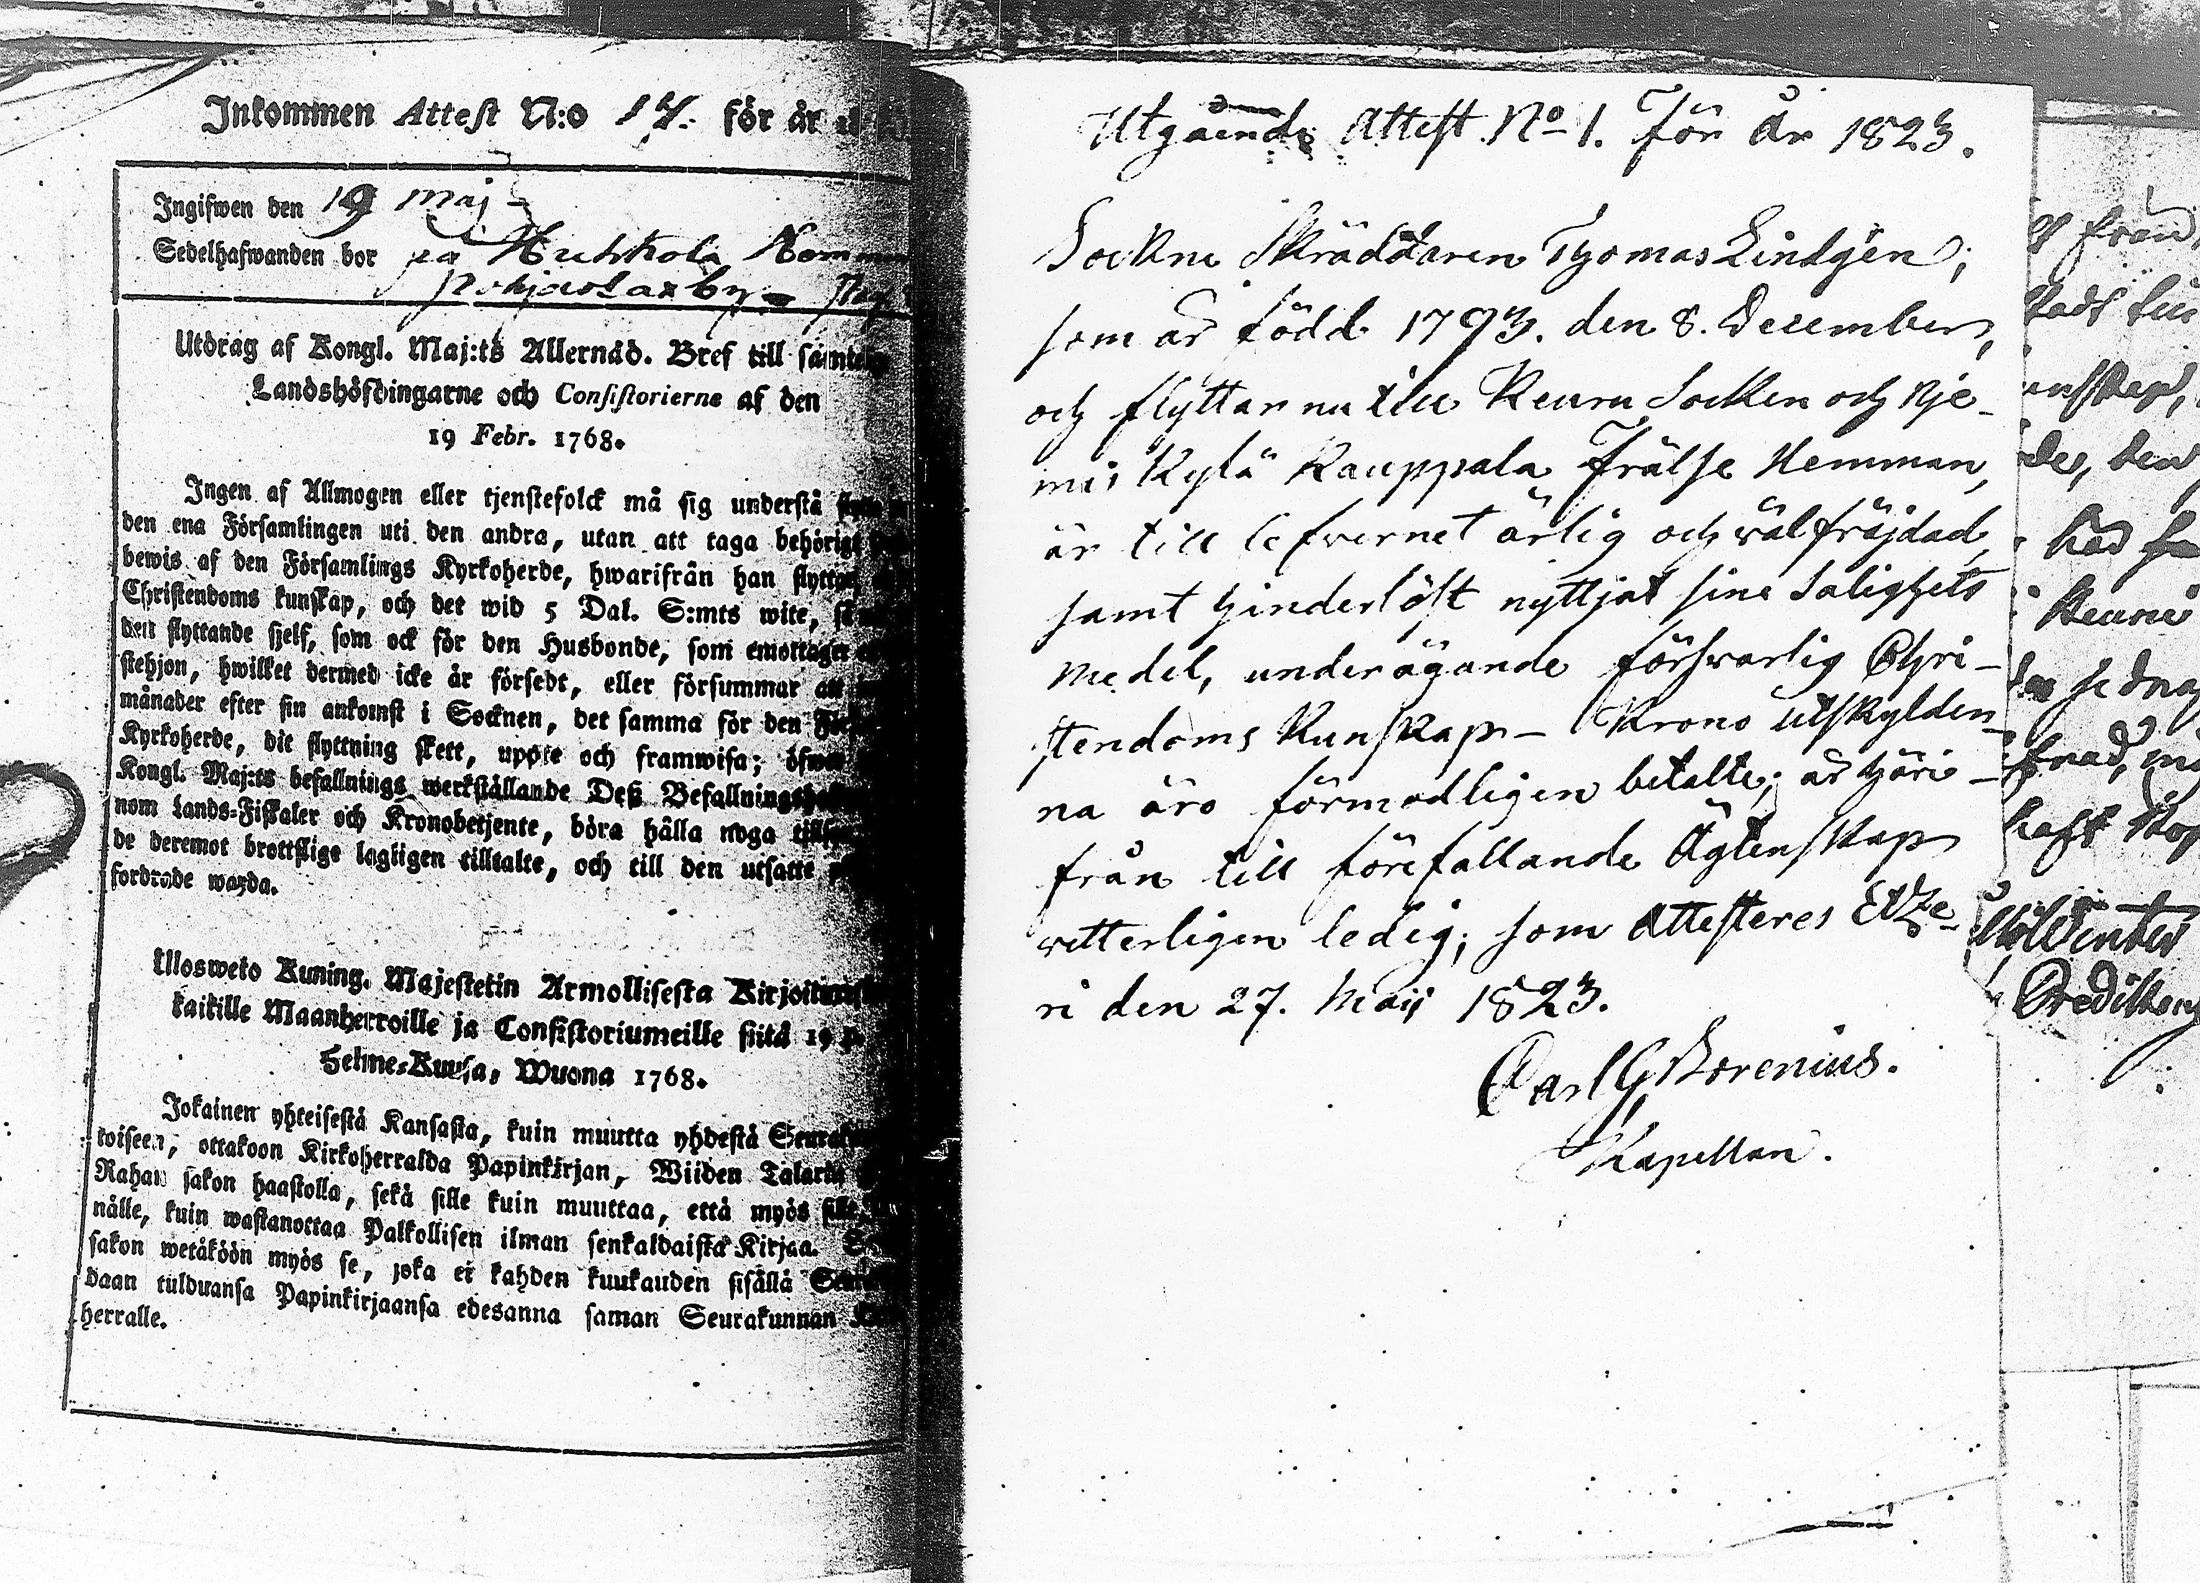 Inkommen Attest N:o 17. för år
Ingifwen den 19 Maj
Sedelhafwanden bor på Huhkola Hemman
Pohjaslaxby
Utdrag af Kongl. Maj:ts Allernåd. Bref till samtelige
Landshöfdingarne och Consistorierne af den
19 Febr. 1768.
Ingen af Allmogen eller tjenstefolck må sig understå
den ena Församlingen uti den andra, utan att taga behörigt
bewis af den Församlings Kyrkoherde, hwarifrån han flyttar,
Christendoms kunskap, och det wid 5 Dal. S:mts wite,
den flyttande sjelf, som ock för den Husbonde, som emottager
stehjon, hwilket dermed icke är försedt, eller försummar att
månader efter sin ankomst i Socknen, det samma för den
Kyrkoherde, dit flyttning skett, uppte och framwisa; öfwer
Kongl. Maj:ts befallnings werkställande Deß Befallningshafwande
nom Lands-Fiskaler och Kronobetjente, böra hålla noga
de deremot brottslige lagligen tilltalte, och till den utsatte
fordrade warda.
Ulosweto Kuning. Majestetin Armollisesta Kirjoituksesta
kaikille Maanherroille ja Consistoriumeille siitä 19 p.
Helme-Kuusa, Wuona 1768.
Jokainen yhteisestä Kansasta, kuin muutta yhdestä
toiseen, ottakoon Kirkoherralda Papinkirjan, Wiiden Talarin
Rahan sakon haastolla, sekä sille kuin muuttaa, että myös sille,
nälle, kuin wastanottaa Palkollisen ilman senkaldaista Kirjaa.
sakon wetäköön myös se, joka ei kahden kuukauden sisällä
daan tulduansa Papinkirjaansa edesanna saman Seurakunnan
herralle.
Utgående Attest No 1. För År 1823.
Sockne Skräddaren Thomas Lindgén;
som är född 1793. den 8. December,
och flyttar nu till Keuru Socken och Kje-
mis Kylä Kauppala Frälse Hemman,
är till lefvernet ärlig och välfräjdad,
samt hinderlöst nyttjat sine Salighets
medel, underägande försvarlig Chri-
stendoms Kunskap – Krono utskylden-
na äro förmodligen betalte; är häri-
från till förefallande Ägtenskap
vitterligen ledig; som attesteres Etze-
ri den 27. Maij 1823.
Carl G Borenius.
Kapellan.